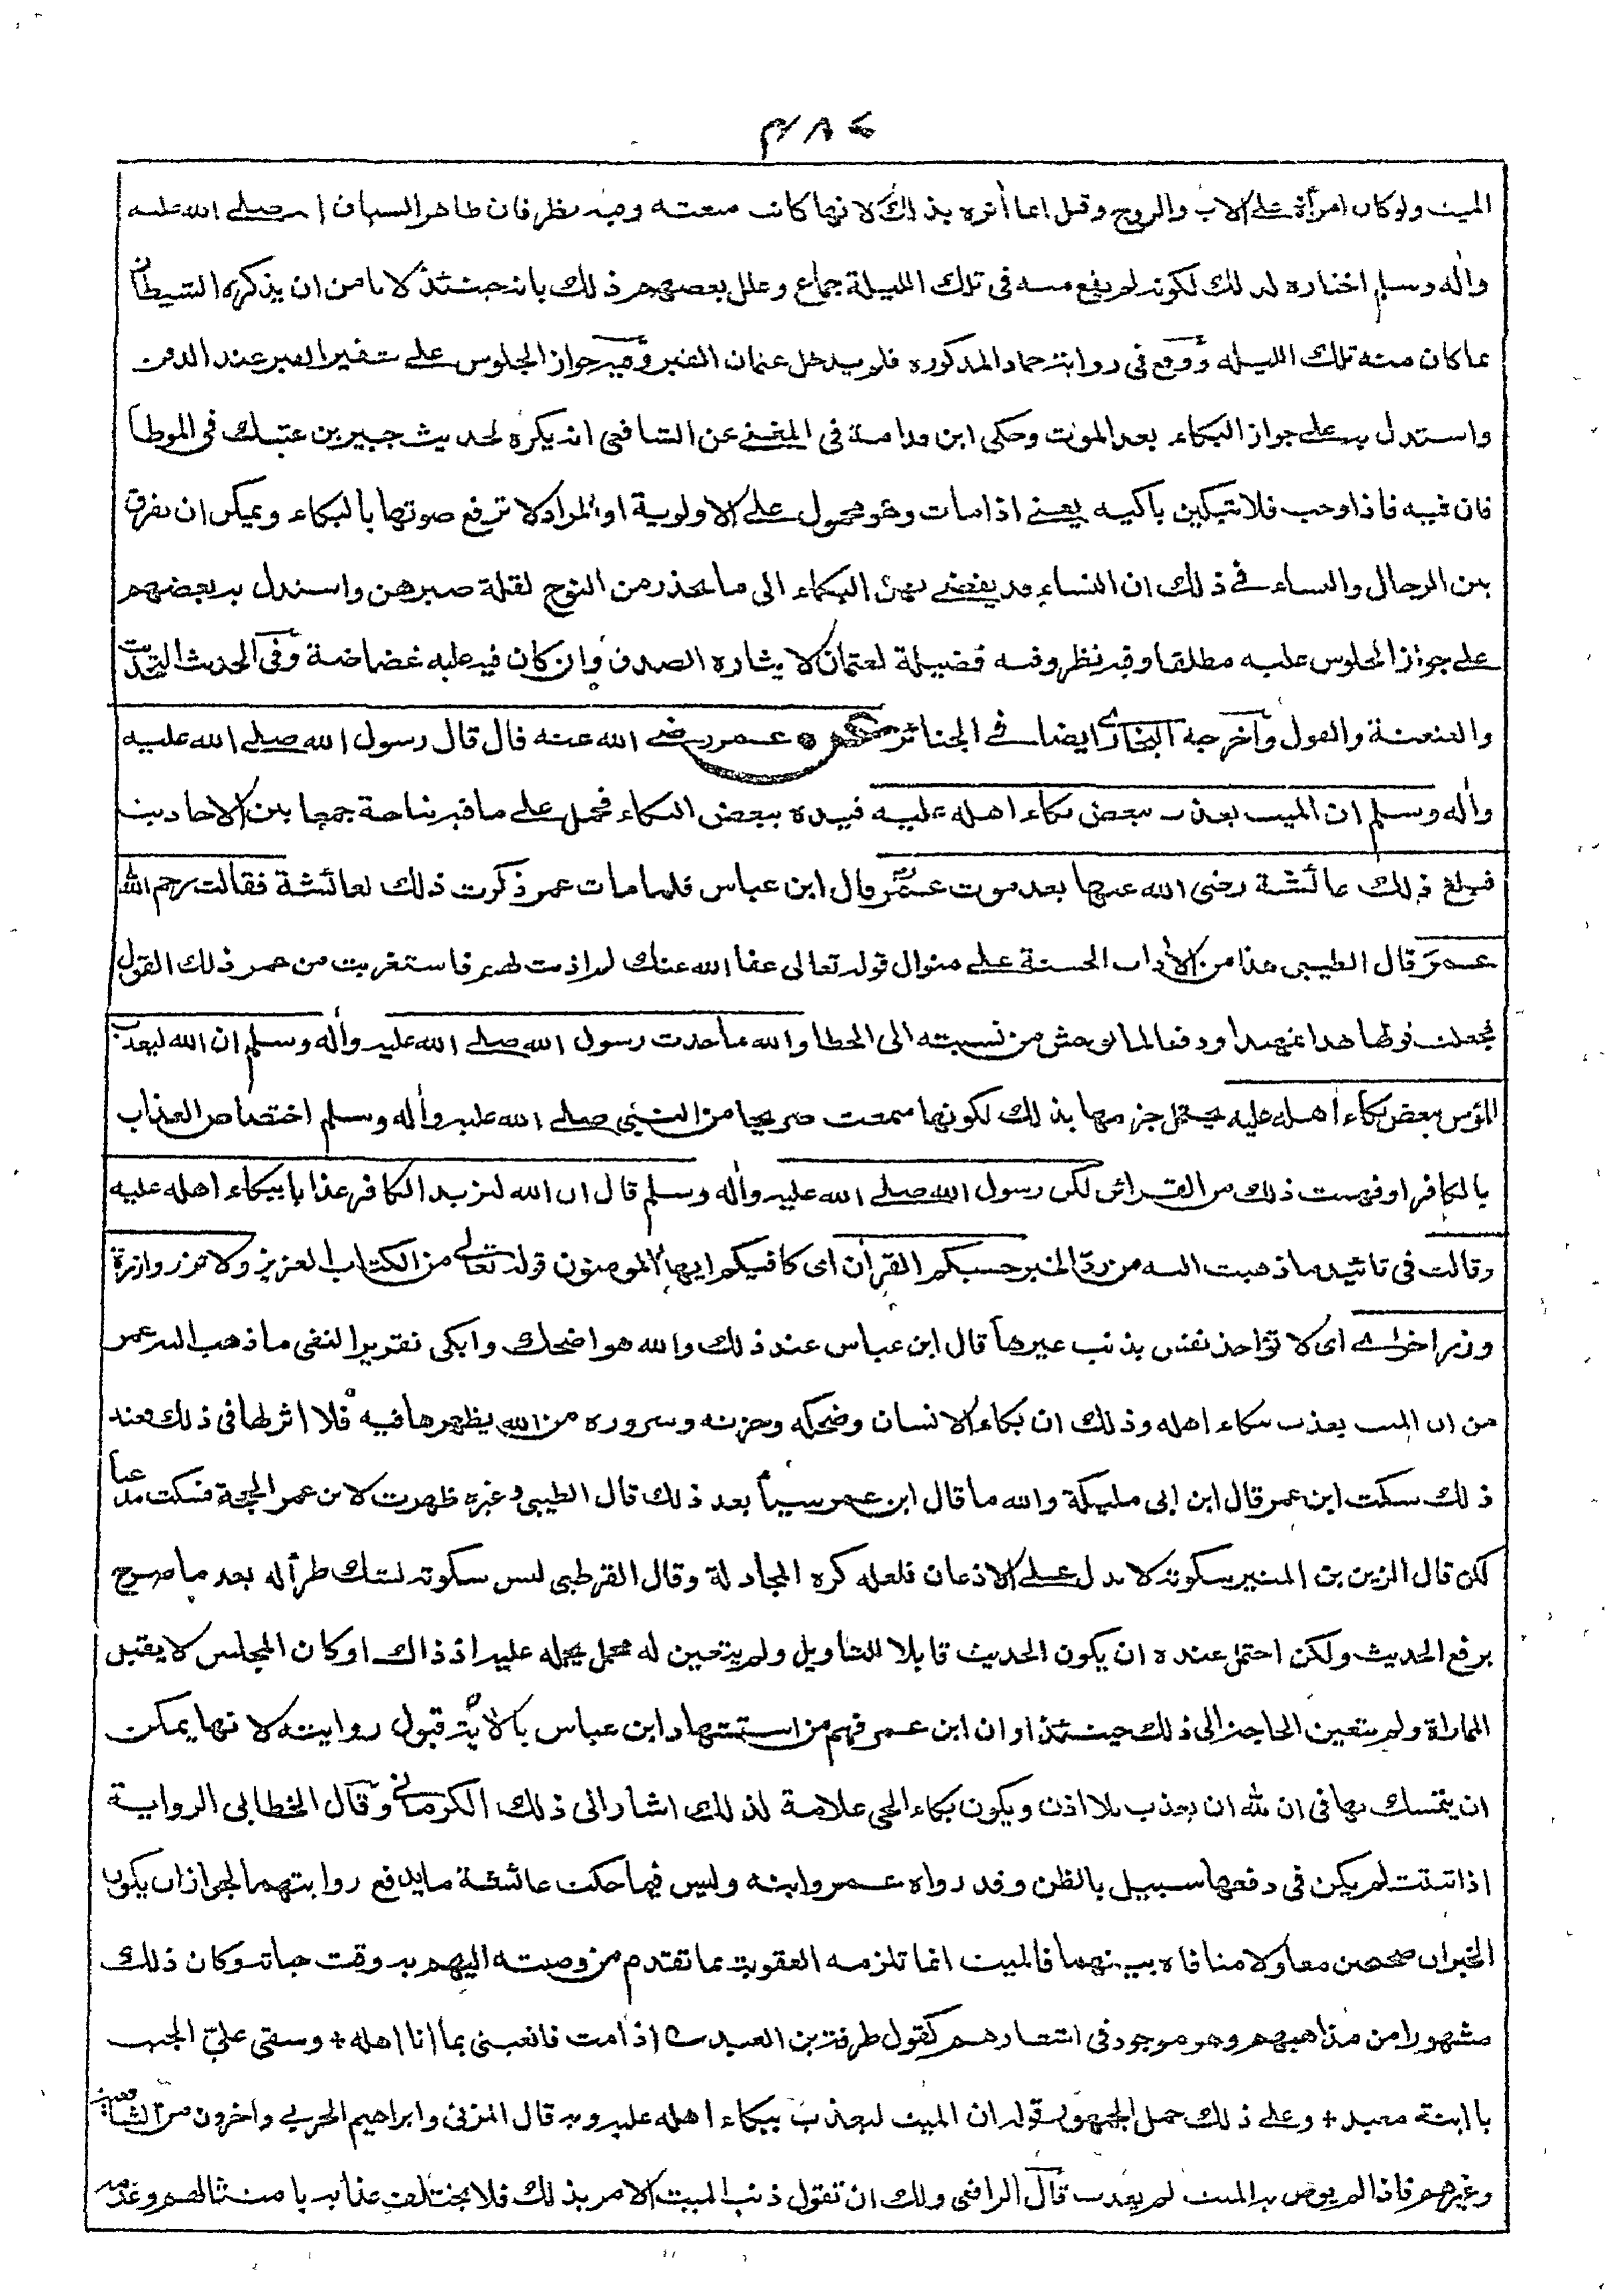 الميت ولو كان امرأة على الاب والزوج وقيل انما أثره بذلك لانها كانت صنعته وفيه نظر فان ظاهر السياق صلى الله عليه
وأله وسلم اختاره لذلك لكونه لم يقع منه فى تلك الليلة جماع وعلل بعضهم ذلك بانه حينئذ لا يأمن ان يذكره الشيطان
بما كان منه تلك الليله ووقع فى رواية حماد المذكوره فلم يدخل عثمان القبر وفيه جواز الجلوس على شفير القبر عند الدفن
واستدل به على جواز البكاء بعد الموت وحكى ابن قدامة فى المغنى عن الشافعى انه يكره لحديث جبير بن عتيك فى الموطأ
فان فيه فاذا وجب فلا تبكين باكيه يعنى اذا مات وهو محمول على الاولوية او المراد لا ترفع صوتها بالبكاء ويمكن ان يفرق
بين الرجال والنساء فى ذلك ان النساء قد يفضى بهن البكاء الى ما يحذر من النوح لقلة صبرهن واستدل به بعضهم
على جواز الجلوس عليه مطلقا وفيه نظر وفيه فضيلة لعثمان لايثاره الصدق وان كان فيه عليه غضاضة وفى الحديث التحديث
والعنعنة والقول وأخرجه البخارى ايضا فى الجنائز عمر رضى الله عنه قال قال رسول الله صلى الله عليه
وأله وسلم ان الميت يعذب ببعض بكاء اهله عليه قيده ببعض البكاء فحمل على ما فيه نياحة جمعا بين الاحاديث
فبلغ ذلك عائشة رضى الله عنها بعد موت عمر قال ابن عباس فلما مات عمر ذكرت ذلك لعائشة فقالت رحم الله
عمر قال الطيبى هذا من الأداب الحسنة على منوال قوله تعالى عفا الله عنك لم اذنت لهم فاستغربت من عمر ذلك القول
فجعلت قولها هذا تمهيدا ودفعا لما يوحش من نسبته الى الخطا والله ما حدث رسول الله صلى الله عليه وأله وسلم ان الله ليعذب
المؤمن ببعض بكاء اهله عليه يحتمل جزمها بذلك لكونها سمعت صريحا من النبى صلى الله عليه وأله وسلم اختصاص العذاب
بالكافر او فهمت ذلك من القرائن لكن رسول الله صلى الله عليه وأله وسلم قال ان الله ليزيد الكافر عذابا ببكاء اهله عليه
وقالت فى تائيد ما ذهبت اليه من ردّ الخبر حسبكم القرأن اى كافيكم ايها المومنون قوله تعالى من الكتاب العزيز ولا تزر وازرة
وزر اخرى اى لا تؤاخذ نفس بذنب غيرها قال ابن عباس عند ذلك والله هو اضحك وابكى تقريرا لنفى ما ذهب اليه عمر
من ان الميت يعذب ببكاء اهله وذلك ان بكاء الانسان وضحكه وحزنه وسروره من الله يظهرها فيه فلا اثر لها فى ذلك فعند
ذلك سكت ابن عمر قال ابن ابى مليكة والله ما قال ابن عمر شيأ بعد ذلك قال الطيبى وغيره ظهرت لابن عمر الحجة فسكت مذعنا
لكن قال الزين بن المنير سكوته لا يدل على الاذعان فلعله كره المجادلة وقال القرطبى ليس سكوته لشك طرأ له بعد ما صرح
برفع الحديث ولكن احتمل عنده ان يكون الحديث قابلا للتأويل ولم يتعين له محمل يحمله عليه اذ ذاك او كان المجلس لا يقبل
المماراة ولم يتعين الحاجة الى ذلك حينئذ او ان ابن عمر فهم من استشهاد ابن عباس بالأية قبول روايته لانها يمكن
ان يتمسك بها فى ان لله ان يعذب بلا اذن ويكون بكاء الحى علامة لذلك اشار الى ذلك الكرمانى وقال الخطابى الرواية
اذا ثبتت لم يكن فى دفعها سبيل بالظن وقد رواه عمر وابنه وليس فيما حكت عائشة ما يدفع روايتهما لجواز ان يكون
الخبران صحيحين معا ولا منافاه بينهما فالميت انما تلزمه العقوبة بما تقدم من وصيته اليهم به وقت حياته وكان ذلك
مشهورا من مذاهبهم وهو موجود فى اشعارهم كقول طرفة بن العبد اذا مت فانعينى بما انا اهله + وسقى علىّ الجيب
يا ابنة معبد + وعلى ذلك حمل الجمهور قوله ان الميت ليعذب ببكاء اهله عليه وبه قال المزنى وابراهيم الحربى واخرون من الشافعية
وغيرهم فاذا لم يوص به الميت لم يعذب قال الرافعى ولك ان تقول ذنب الميت الامر بذلك فلا يختلف عذابه بامتثالهم وعدمه